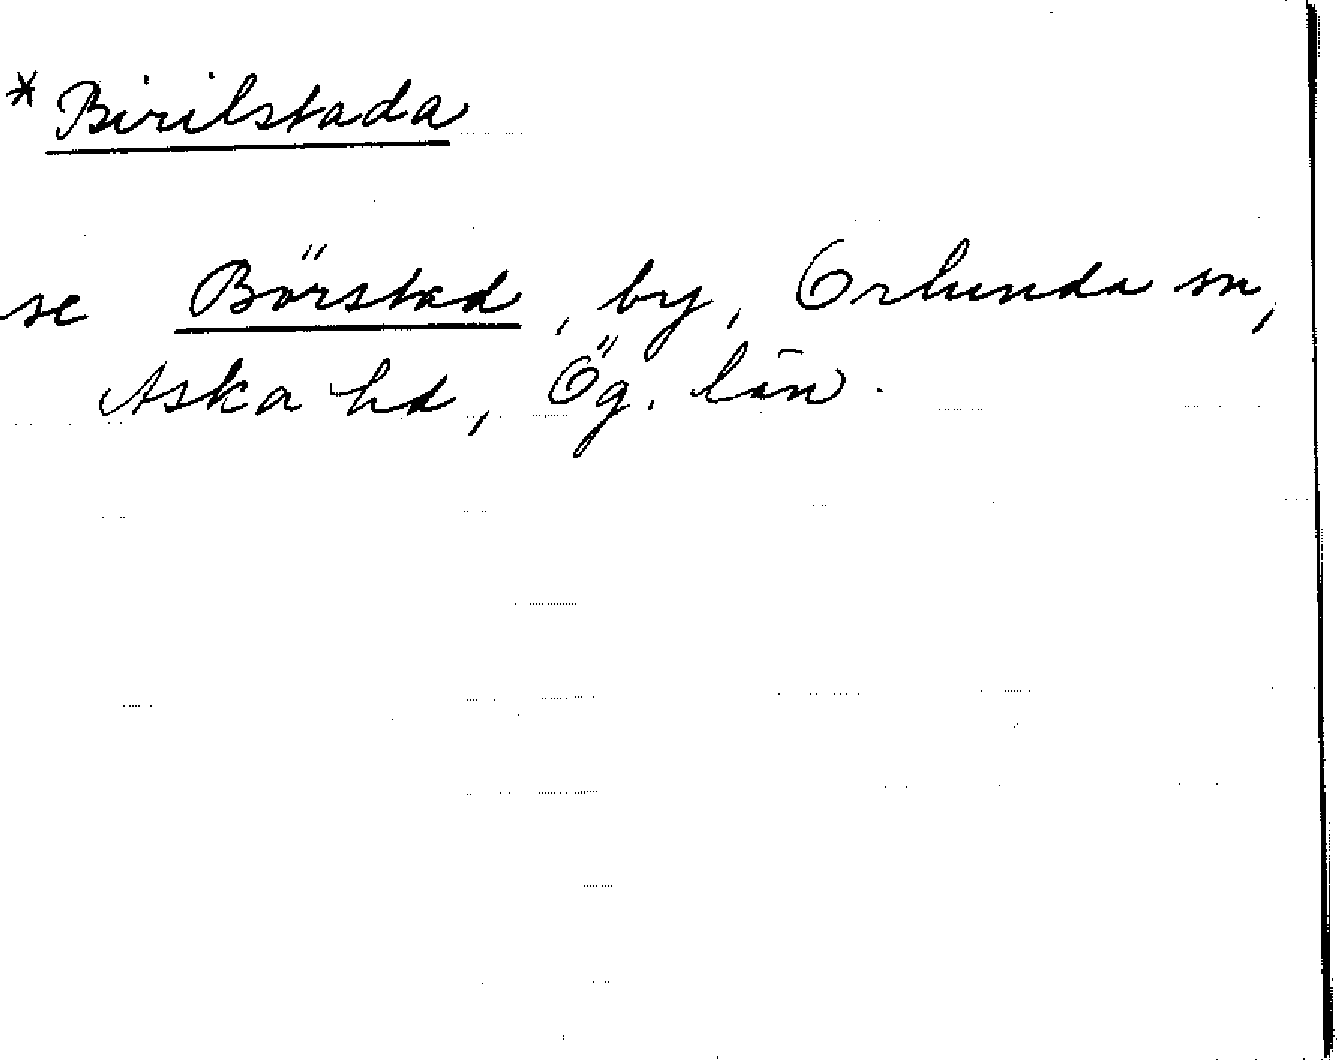 * Birilstada
se Börstad, by, Orlunda sn,
Aska hd, Ög. län.